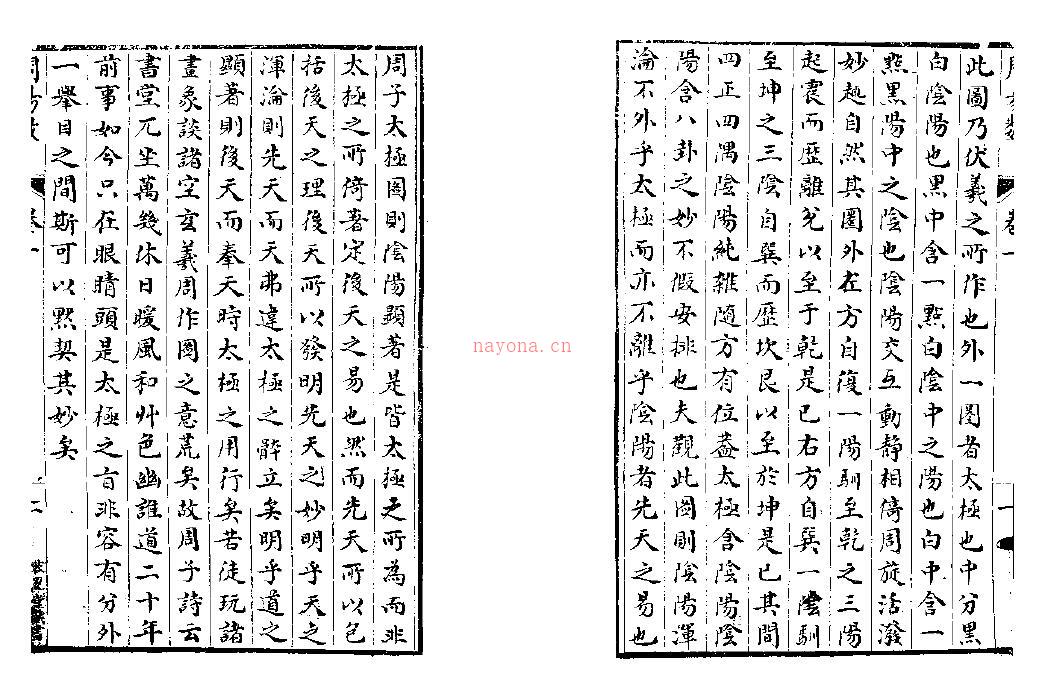 此圖乃伏羲之所作也外一圈者太極也中分黑
白陰陽也黑中含一點白陰中之陽也白中含一
點黑陽中之陰也陰陽交互動靜相倚周旋活潑
妙趣自然其圈外在方自復一陽馴至乾之三陽
起震而歷離兌以至于乾是已右方自巽一陰馴
至坤之三陰自巽而歷坎艮以至於坤是已其間
四正四隅陰陽純雜隨方有位蓋太極含陰陽陰
陽含八卦之妙不假安排也夫觀此圖則陰陽渾
淪不外乎太極而亦不離乎陰陽者先天之易也
卷一
一
周子太極圖則陰陽顯著是皆太極之所為而非
太極之所倚著定後天之易也然而先天所以包
括後天之理後天所以發明先天之妙明乎天之
渾淪則先天而天弗違太極之體立矣明乎道之
顯著則後天而奉天時太極之用行矣若徒玩諸
畫象談諸空玄羲周作圖之意荒矣故周子詩云
書堂兀坐萬幾休日暖風和艸色幽誰道二十年
前事如今只在眼睛頭是太極之旨非容有分外
一舉目之間斯可以默契其妙矣
卷一
二
nayona.cn